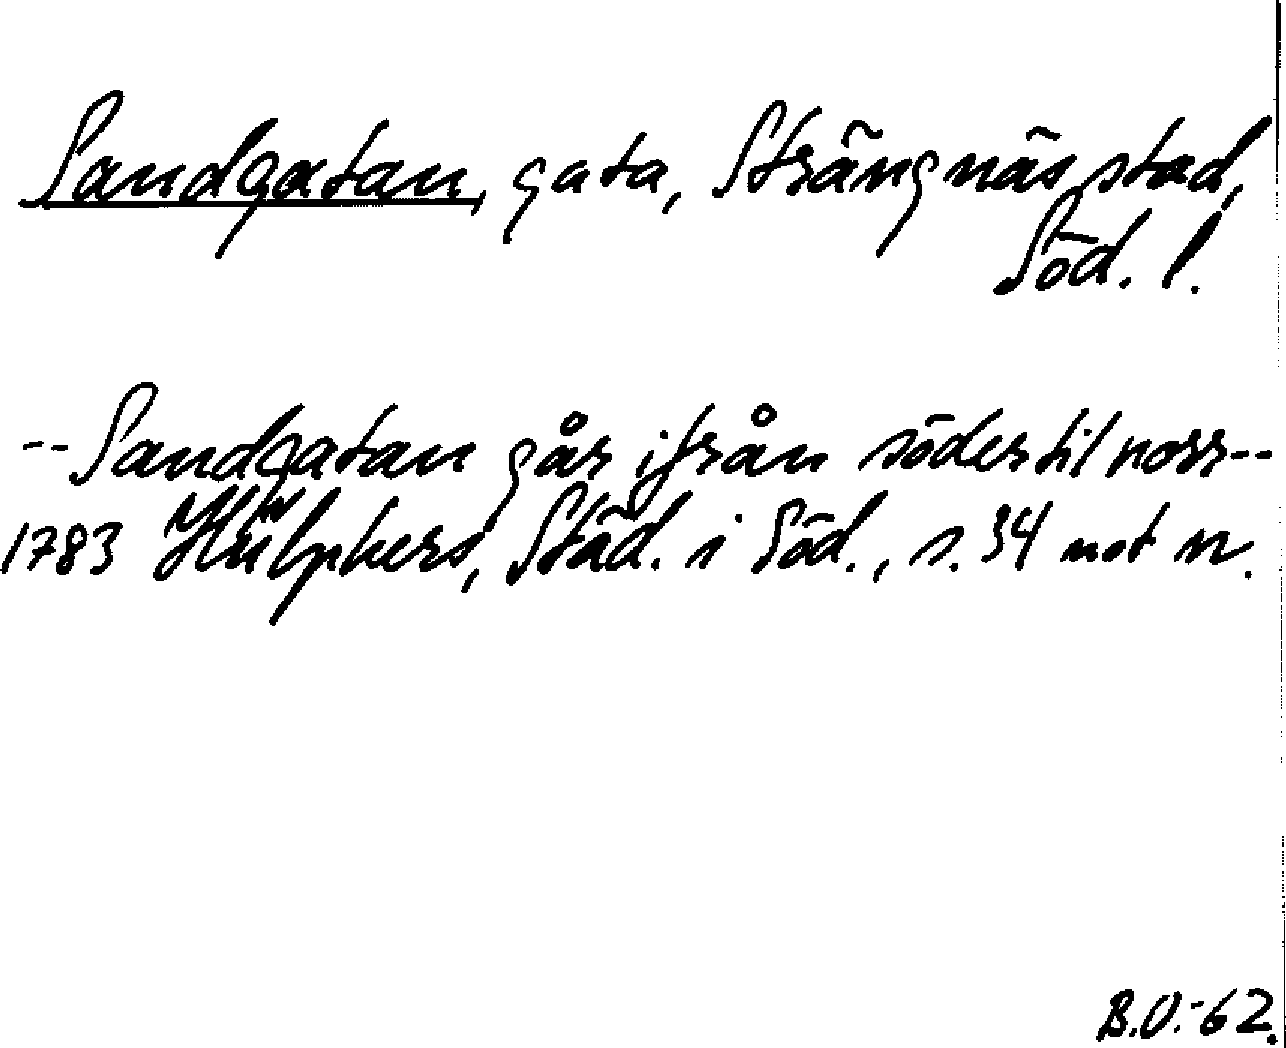 Sandgatan, gata, Strängnäs stad,
Söd. l.
-- Sandgatan går ifrån söder til norr --
1783 Hülphers, Städ. i Söd., s. 34 not n.
B.O.-62.